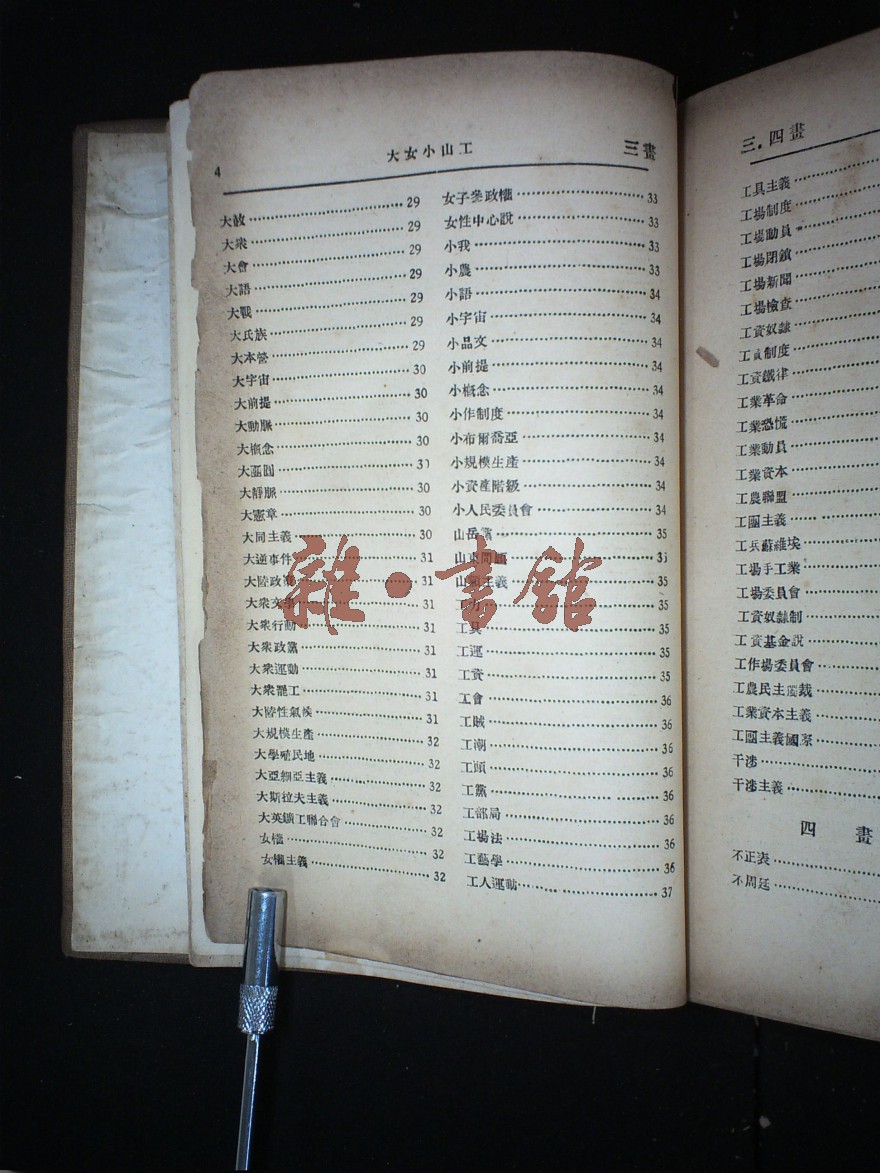 4 大女小山工 三畫
大赦 29
大衆 29
大會 29
大語 29
大戰 29
大民族 29
大本營 29
大宇宙 30
大前提 30
大動脈 30
大概念 30
大團圓
大靜脈 30
大憲章 30
大同主義 30
大逆事件 31
大陸政策 31
大衆文學 31
大衆行動 31
大衆政黨 31
大衆運動 31
大衆罷工 31
大陸性氣候 31
大規模生產 32
大學殖民地 32
大亞細亞主義 32
大斯拉夫主義 32
大英鑛工聯合會 32
女權 32
女權主義 32
女子參政權 33
女性中心說 33
小我 33
小農 33
小語 34
小宇宙 34
小品文 34
小前提 34
小概念 34
小作制度 34
小布爾喬亞 34
小規模生產 34
小資產階級 34
小人民委員會 34
山岳黨 35
山東問題 35
山嶽主義 35
工力 35
工具 35
工運 35
工資 35
工會 36
工賊 36
工潮 36
工頭 36
工黨 36
工部局 36
工場法 36
工藝學 36
工人運動 37
三.四畫
工具主義
工場制度
工場動員
工場閉鎖
工場新聞
工場檢查
工資奴隸
工資制度
工資鐵律
工業革命
工業恐慌
工業動員
工業資本
工農聯盟
工團主義
工兵蘇維埃
工場手工業
工場委員會
工資奴隸制
工資基金說
工作場委員會
工農民主獨裁
工業資本主義
工團主義國家
干涉
干涉主義
四 畫
不正表
不周延
雜·書館